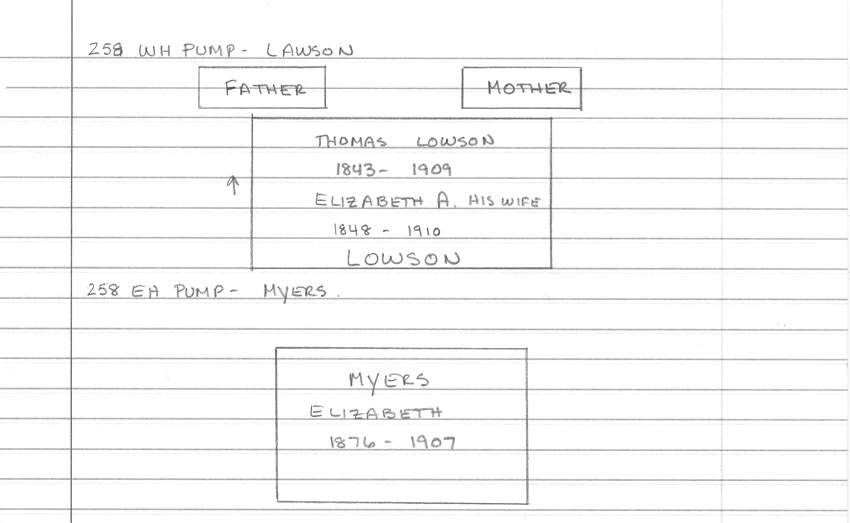 258 WH PUMP - LAWSON
FATHER MOTHER
THOMAS LOWSON
1843 - 1909
ELIZABETH A. HIS WIFE
1848 - 1910
LOWSON
258 EH PUMP - MYERS.
MYERS
ELIZABETH
1876 - 1907